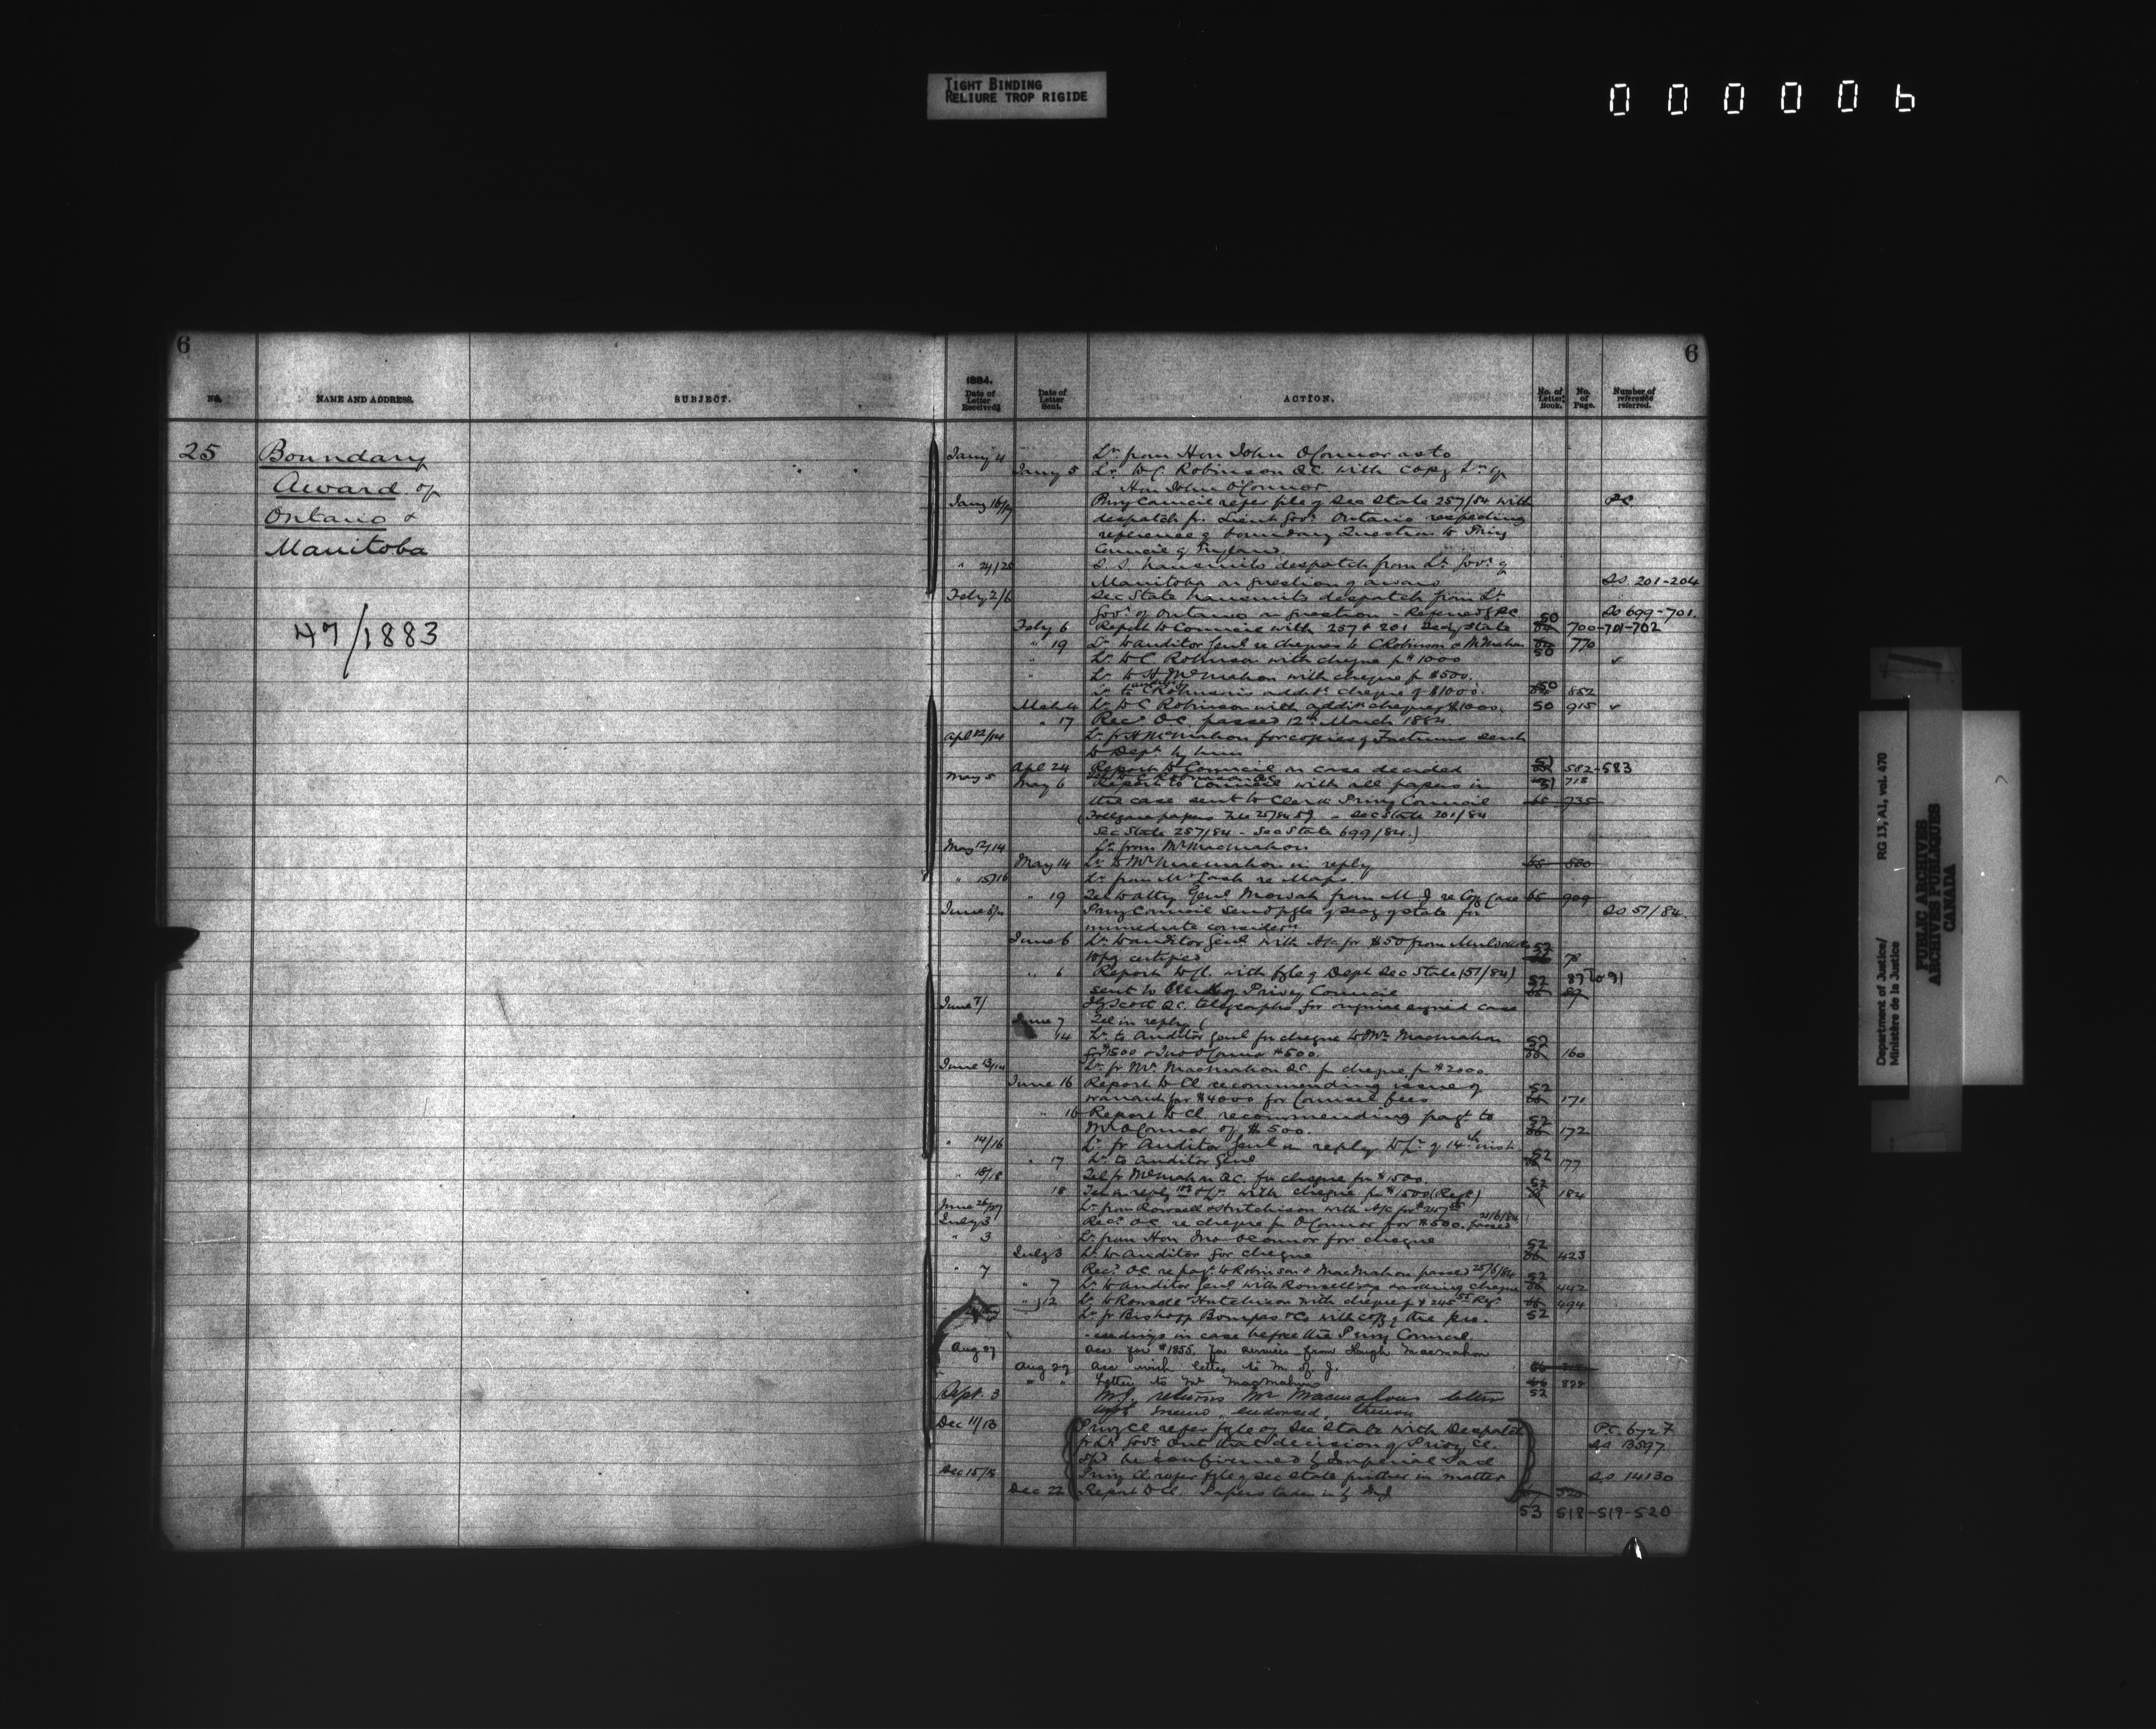 TIGHT BINDING
RELIURE TROP RIGIDE
000006
6
6
NO.
NAME AND ADDRESS.
SUBJECT.
1884.
Date of Letter Received
Date of Letter Sent.
ACTION.
No. of Letter Book.
No. of Page.
Number of reference referred.
25
Boundary
Award of
Ontario &
Manitoba
47/1883
Jany 4 Lr from Hon John O'Connor as to
Jany 5 Lr to C Robinson QC with copy Lr of
Hon John O'Connor
Jany 16/17 Privy Council refer file of Sec State 257/84 with PC
despatch fr. Lieut Govr Ontario respecting
reference of boundary Question to Privy
Council of England
" 24/25 S.S. transmits despatch from Lt Govr of
Manitoba on question of award SS. 201-204
Feby 2/6 Sec State transmits despatch from Lt
Govr of Ontario on question - Referred by PC 50 SS 699-701.
Feby 6 Report to Council with 257 & 201 Secy State 700-701-702
" 19 Lr to Auditor Genl re cheques to C Robinson & McMahon 50 770
" Lr to C Robinson with cheque for $1000 ✓
" Lr to H McMahon with cheque for $500.
Lr to C Robinson's addl cheque of $1000. 50 852
Mch 4 Lr to C Robinson with addn cheque $1000. 50 915 ✓
" 17 Recd O.C. passed 12th March 1884
Apl 12/14 Lr fr H McMahon for copies of Factums sent
to Dept by him
Apl 24 Report to Council on case decided 51 582-583
May 5 C Robinson QC
May 6 Report to Council with all papers in 51 718
the case sent to Clerk Privy Council 735
Sec State 201/84
Sec State 257/84 - Sec State 699/84.)
May 12/14 Lr from Mr MacMahon
May 14 Lr to Mr MacMahon in reply
" 15/16 Lr from Mr Lash re Maps
" 19 Tel to Atty Genl Mowat from M J re Case 909
June Privy Council send fyle of Secy of State for SS 51/84.
immediate considern
June 6 Lr to Auditor Genl with A/c for $50 from 52
certified 78
" 6 Report to Cl. with fyle of Dept Sec State (51/84) 52 87 to 91
sent to Clerk of Privy Council 89
June 7/ Scott QC. telegraphs for original signed case
June 7 Tel in reply
14 Lr to Auditor Genl for cheque to Mr MacMahon 52
for $1500 & Jno O'Connor $500. 160
June 13/14 Lr fr Mr MacMahon QC for cheque for $2000
June 16 Report to Cl recommending issue of 52
warrant for $4000 for Counsel fees 171
" 16 Report to Cl recommending payt to 52
Mr O'Connor of $500. 172
" 14/16 Lr fr Auditor Genl in reply to Lr of 14th inst
" 17 Lr to Auditor Genl 52 177
" 18/18 Tel fr McMahon QC. for cheque for $1500
18 Tel in reply & Lr with cheque for $1500 (Regd) 52 184
June 26/27 Lr from Rowsell & Hutchison with A/c for
July 3 Recd O.C. re cheque for O'Connor for $500. passed 21/6/84
" 3 Lr from Hon Jno O'Connor for cheque
July 3 Lr to Auditor for cheque 52 423
" 7 Recd OC re payt to Robinson & MacMahon passed 25/6/84
" 7 Lr to Auditor Genl with Rowsell's cheque 52 442
" 12 Lr to Rowsell Hutchison with cheque for $245 Regd 494
Lr fr Bishopp Bompas & Co with copy of the pro- 52
-ceedings in case before the Privy Council.
Aug 27 acc for $1855. for services from Hugh Macmahon
Aug 29 acc with letter to M. of J.
" " Letter to Mr MacMahon 52
Sept. 3 M.J. returns Mr Macmahons letter
with memo endorsed thereon
Dec 11/13 Privy Cl refer fyle of Sec State with Despatch P.C. 6727
fr Lt Govr Ont that decision of Privy Cl. SS 13597
shd be confirmed by Imperial Parl
Dec 15/18 Privy Cl. refer fyle of Sec State further in matter SS 14130
Dec 22 Report to Cl. Papers taken in by
53 518-519-520
Department of Justice/
Ministère de la Justice
RG 13, A1, vol. 470
PUBLIC ARCHIVES
ARCHIVES PUBLIQUES
CANADA